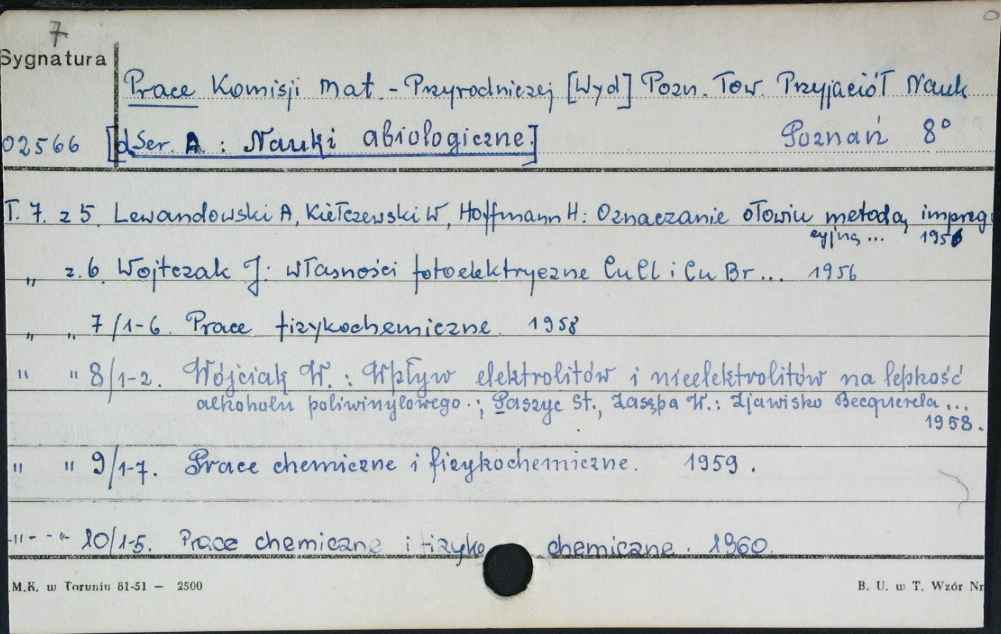 7
Sygnatura
Prace Komisji Mat.-Przyrodniczej [Wyd] Pozn. Tow. Przyjaciół Nauk
02566 [d Ser. A: Nauki abiologiczne.] Poznań 8°
T. 7. z 5. Lewandowski A, Kiełczewski W, Hoffmann H: Oznaczanie ołowiu metodą impreg
cyjną... 1956
„ z. 6. Wojtczak J: Własności fotoelektryczne CuCl i CuBr... 1956
„ „ 7/1-6. Prace fizykochemiczne. 1958
" " 8/1-2. Wójciak W.: Wpływ elektrolitów i nieelektrolitów na lepkość
alkoholu poliwinylowego.; Paszyc St., Zasępa W.: Zjawisko Becquerela...
1958.
" " 9/1-7. Prace chemiczne i fizykochemiczne. 1959.
-"- - "- 10/1-5. Prace chemiczne i fizyko chemiczne. 1960.
M.K. w Toruniu 81-51 — 2500 B. U. w T. Wzór Nr